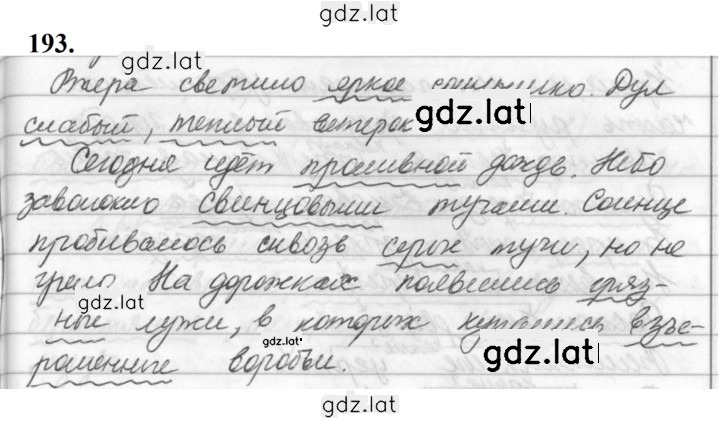 gdz.lat
193.
gdz.lat
Вчера светило яркое солнышко. Дул
gdz.lat
слабый, теплый ветерок
Сегодня идёт проливной дождь. Небо
заволокло свинцовыми тучами. Солнце
пробивалось сквозь серые тучи, но не
грело. На дорожках появились гряз-
gdz.lat
ные лужи, в которых купались взъе-
gdz.lat
gdz.lat
рошенные воробьи.
gdz.lat